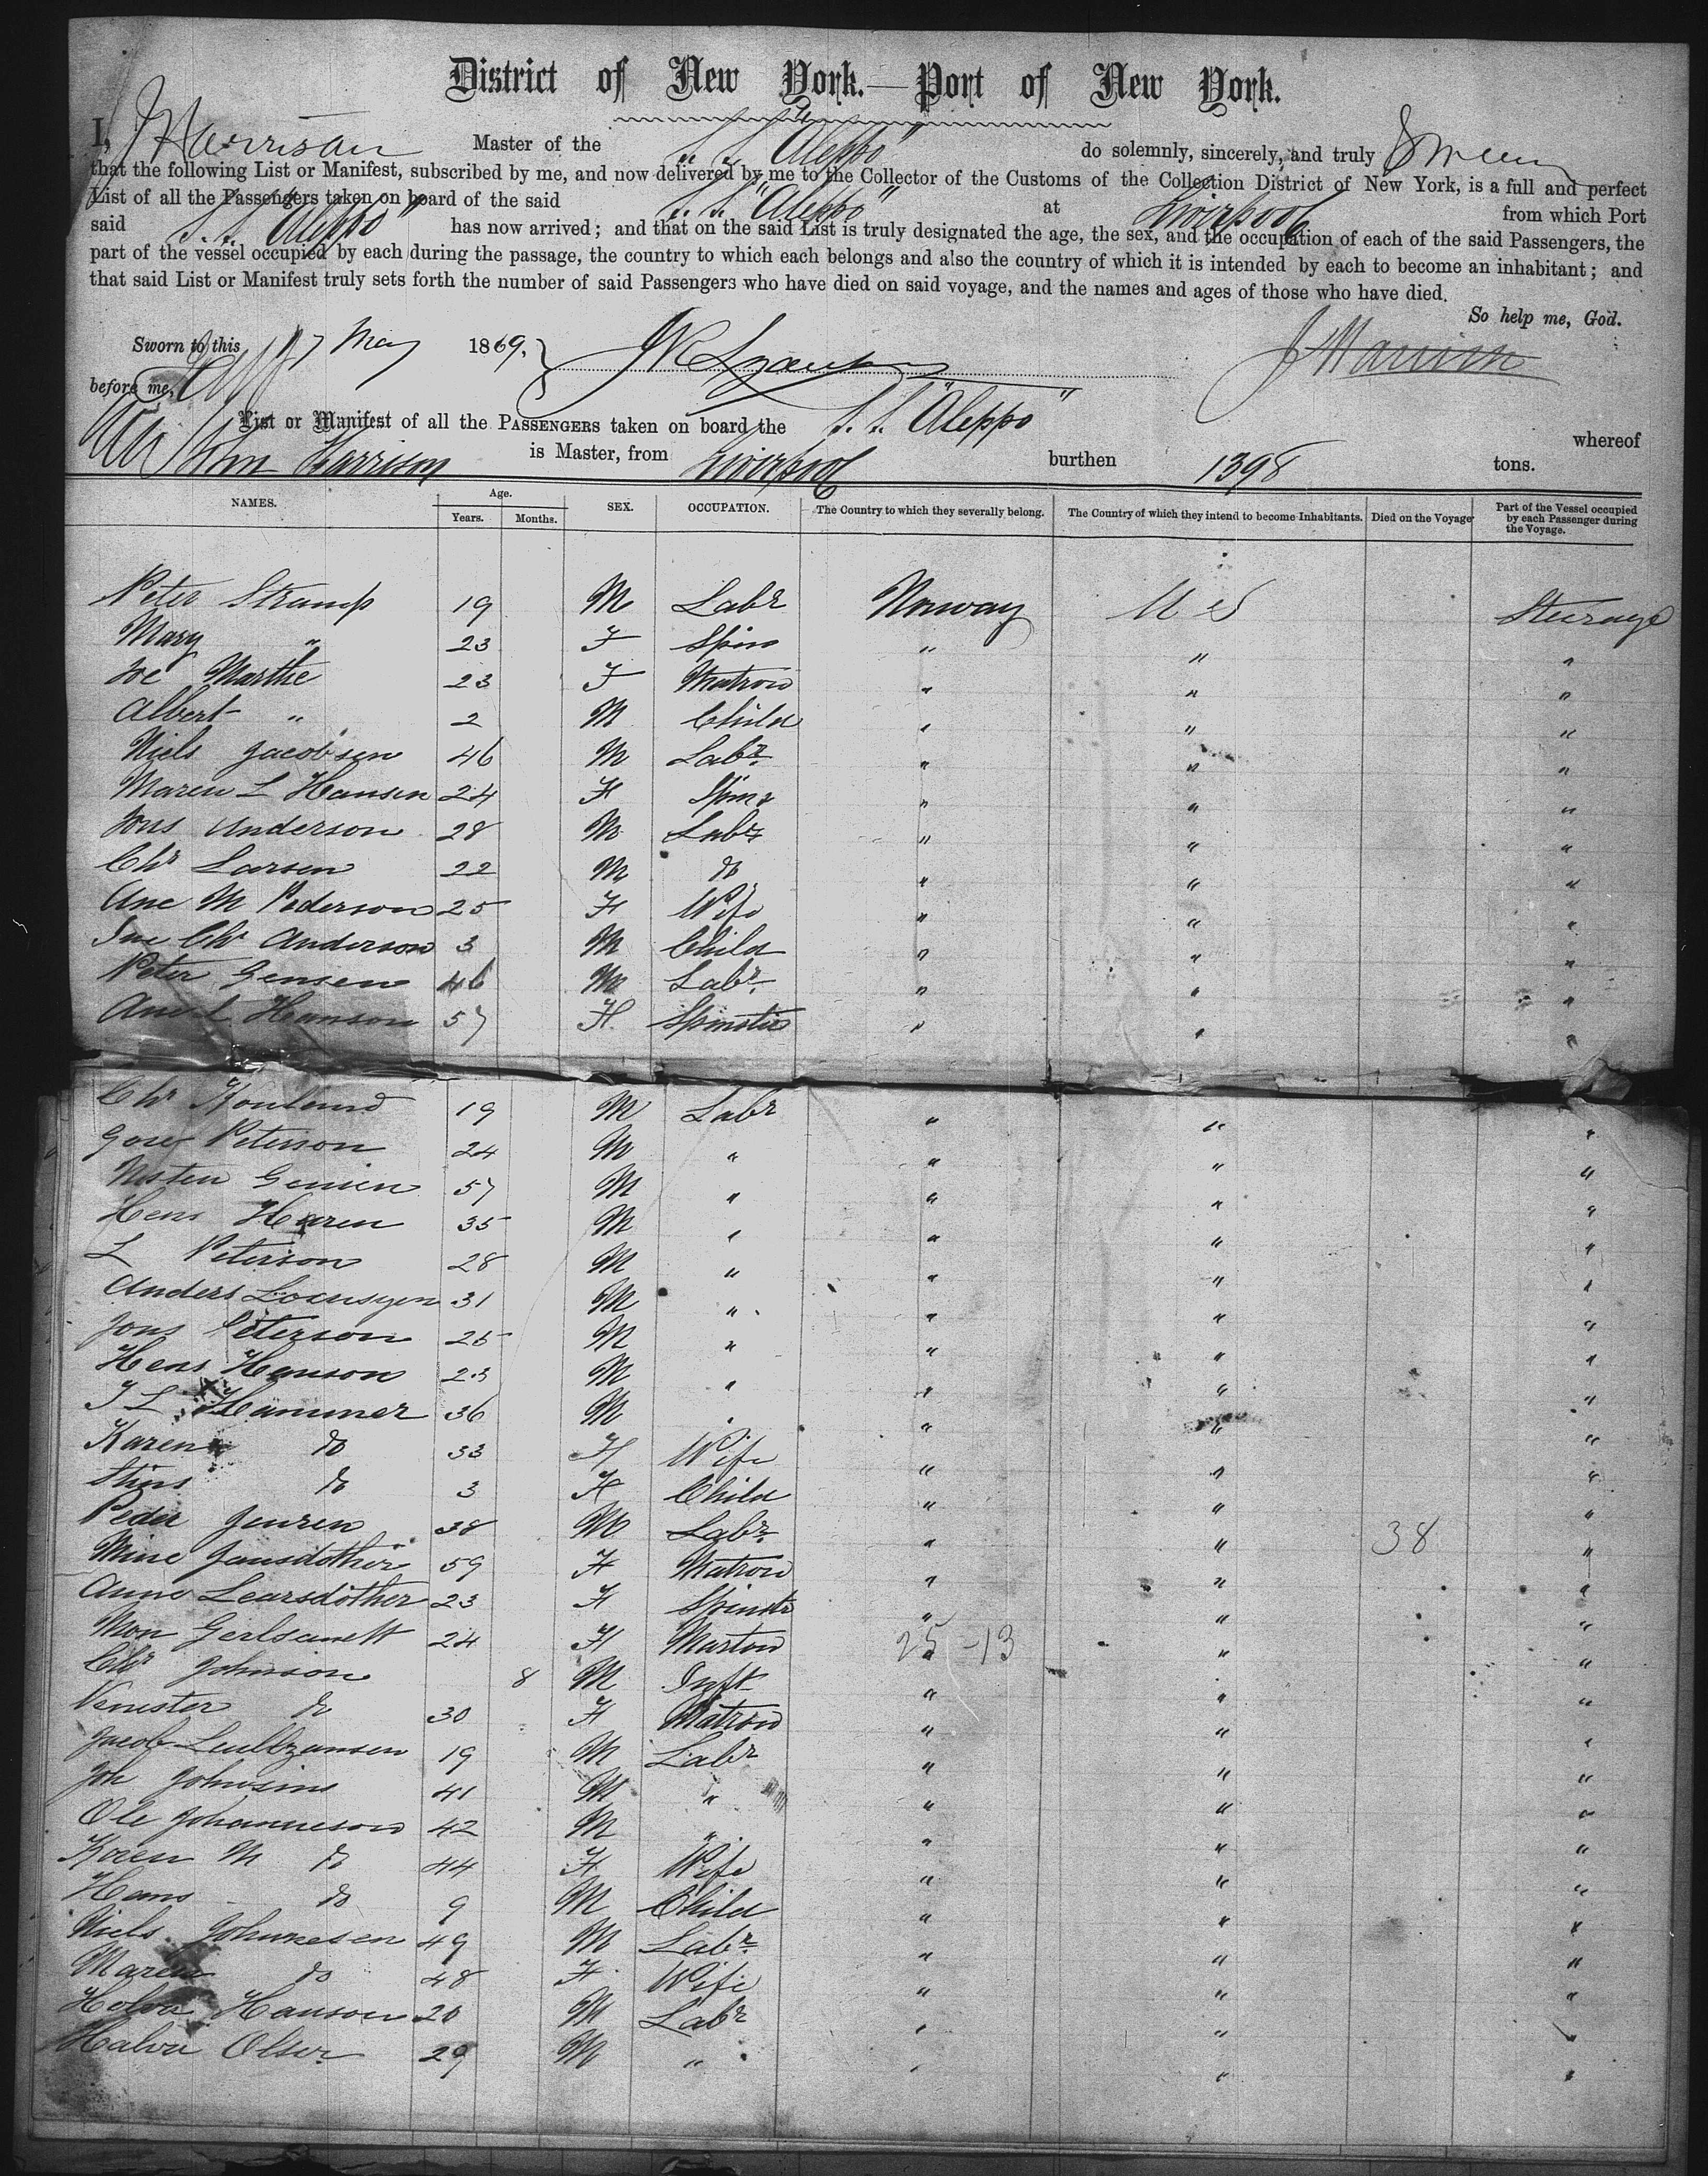 District of New York.—Port of New York.
I, J Harrison Master of the S. S. "Aleppo" do solemnly, sincerely, and truly Swear
that the following List or Manifest, subscribed by me, and now delivered by me to the Collector of the Customs of the Collection District of New York, is a full and perfect
List of all the Passengers taken on board of the said S. S. "Aleppo" at Liverpool from which Port
said S. S. "Aleppo" has now arrived; and that on the said List is truly designated the age, the sex, and the occupation of each of the said Passengers, the
part of the vessel occupied by each during the passage, the country to which each belongs and also the country of which it is intended by each to become an inhabitant; and
that said List or Manifest truly sets forth the number of said Passengers who have died on said voyage, and the names and ages of those who have died.
So help me, God.
Sworn to this 17 May 1869. J Harrison
before me,
List or Manifest of all the PASSENGERS taken on board the S. S. "Aleppo" whereof
John Harrison is Master, from Liverpool burthen 1398 tons.
NAMES. Age. Years. Months. SEX. OCCUPATION. The Country to which they severally belong. The Country of which they intend to become Inhabitants. Died on the Voyage Part of the Vessel occupied by each Passenger during the Voyage.
Peter Stramp 19 M Labr Norway U S Steerage
Mary " 23 F Spin " " "
Marthe 23 F Matron " " "
Albert " 2 M Child " " "
Niels Jacobsen 46 M Labr " " "
Maren L Hansen 24 F Spins " " "
Jons Anderson 28 M Labr " " "
Chr Larsen 22 M do " " "
Ane M Pederson 25 F Wife " " "
Chr Anderson 3 M Child " " "
Peter Gensen 46 M Labr " " "
Ane L Hanson 57 F Spinster " " "
Chr 19 M Labr " " "
Peterson 24 M " " " "
Gensen 57 M " " " "
Hens Haren 35 M " " " "
L Peterson 28 M " " " "
Anders 31 M " " " "
Jons Peterson 25 M " " " "
Hens Hanson 23 M " " " "
Hammer 36 M " " " "
Karen do 33 F Wife " " "
do 3 F Child " " "
Peder Jensen 38 M Labr " " 38 "
Mine Jansdother 59 F Matron " " "
Anne Learsdother 23 F Spinstr " " "
Mon 24 F Marton 25-13 " "
Chr Johnson 8 M Inft " " "
do 30 F Matron " " "
Jacob 19 M Labr " " "
Joh 41 M " " " "
Ole Johanneson 42 M " " " "
Karen M do 44 F Wife " " "
Hans do 9 M Child " " "
Niels Johnnesen 49 M Labr " " "
Maren do 48 F Wife " " "
Hanson 20 M Labr " " "
Halvor Olsen 29 M " " " "